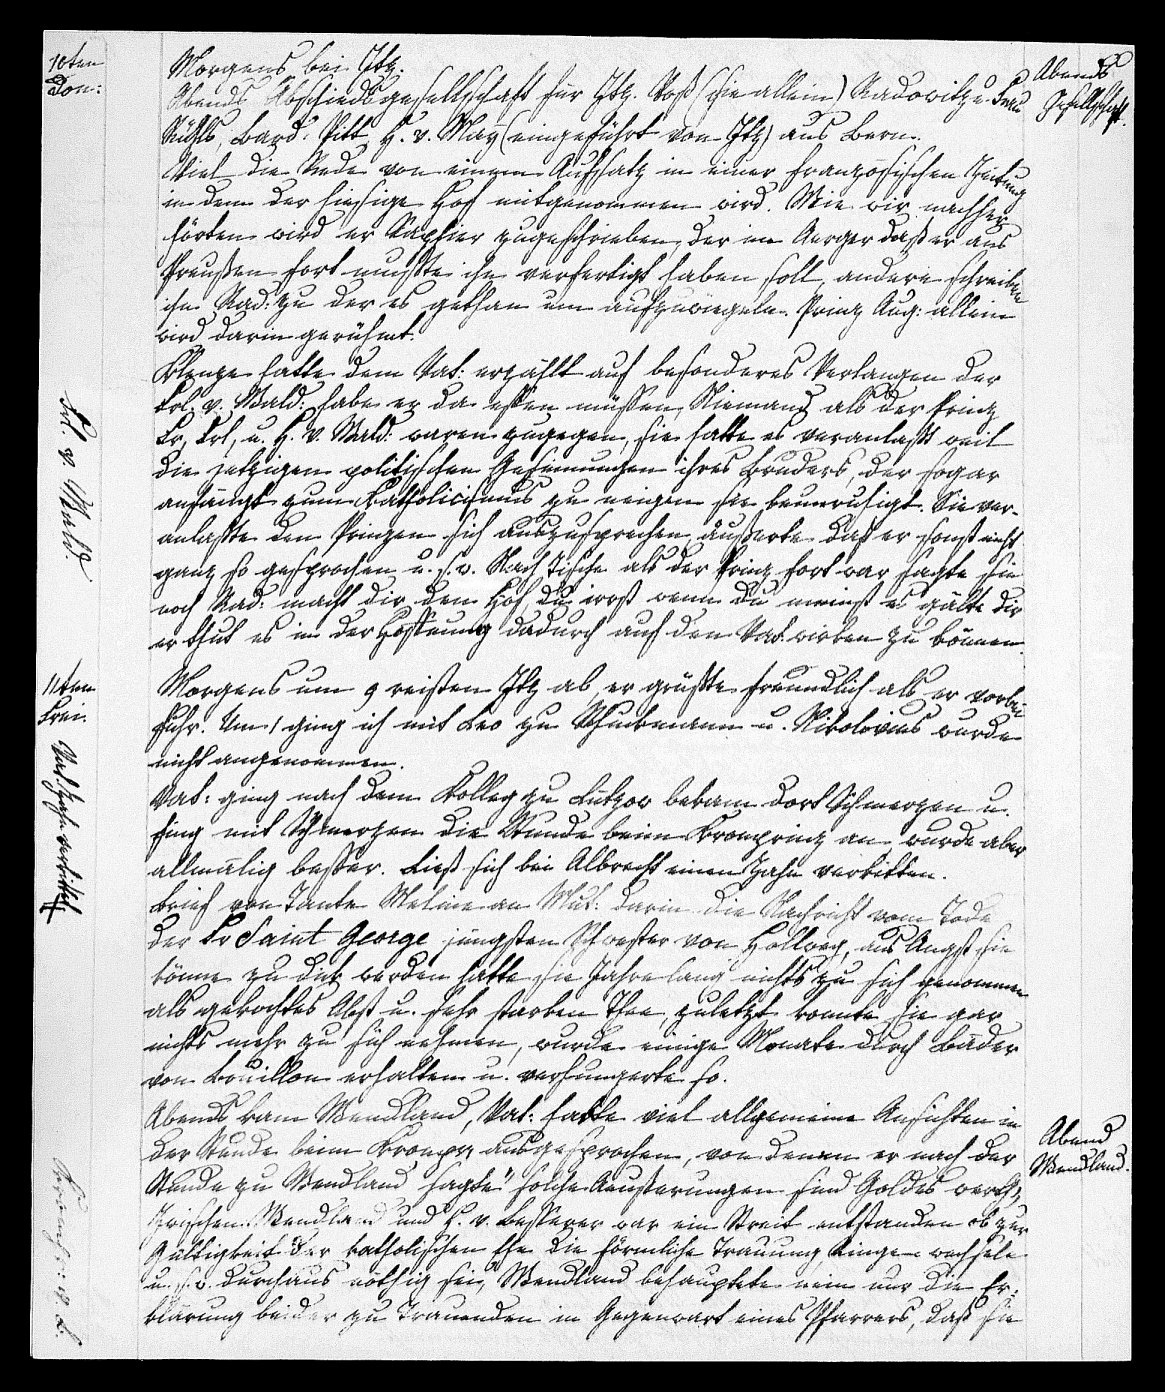 10ten
Don:
Morgens bei Itz.
Abends Abschiedsgesellschaft für Itz. Voß (sie allein) Radowitz u. Frau
Rühle, Bard. Pitt, H. v. May (eingeführt von Itz) aus Bern.
Viel die Rede von einem Aufsatz in einer französischen Zeitung
in dem der hiesige Hof mitgenommen wird. Wie wir nachher
hörten wird er Saphier zugeschrieben, der im Aerger daß er aus
Preußen fort mußte ihn verfertigt haben soll, andere schreiben
ihn Rad: zu der es gethan um aufzuwiegeln. Prinz Aug: allein
wird darin gerühmt.
Abends
Gesellschaft.
Klenze hatte dem Vat: erzählt auf besonderes Verlangen der
Frl. v. Wald: habe er da essen müssen, Niemand als der Prinz
Fr, Frl, u. H. v. Wald: waren zugegen, sie hatte es veranlaßt weil
die jetzigen politischen Gesinnungen ihres Bruders, der sogar
anfängt zum Katholicismus zu neigen sie beunruhigt. Sie ver-
anlaßte den Prinzen sich auszusprechen, äußerte daß er sonst nicht
ganz so gesprochen u. s. w. Nach Tische als der Prinz fort war sagte sie
noch Rad: macht dir den Hof, du irrst wenn du meinst es gälte dir
er thut es in der Hoffnung dadurch auf den Vat. wirken zu können.
Frl. v. Wald.
11ten
Frei.
Morgens um 9 reisten Itz ab, er grüßte freundlich als er vorbei
fuhr. Um 1 ging ich mit Leo zu Schuckmann u. Nikolovius wurde
nicht angenommen.
Vat: ging nach dem Kolleg zu Lützow bekam dort Schmerzen u.
fing mit Schmerzen die Stunde beim Kronprinz an, wurde aber
allmälig besser. Ließ sich bei Albrecht einen Zahn verkitten.
Vat. Zahn verkittet
Brief von Tante Meline an Mut: darin die Nachricht vom Tode
der Fr Saint George jüngsten Schwester von Hollweg, aus Angst sie
könne zu dick werden hatte sie Jahre lang nichts zu sich genommen
als gekochtes Obst u. sehr starken Thee, zuletzt konnte sie gar
nichts mehr zu sich nehmen, wurde einige Monate durch Bäder
von Bouillon erhalten u. verhungerte so.
Abends kam Wendland, Vat: hatte viel allgemeine Ansichten in
der Stunde beim Kronpr ausgesprochen, von denen er nach der
Stunde zu Wendland sagte "solche Aeußerungen sind Goldes werth".
Zwischen Wendland und H. v. Besserer war ein Streit entstanden ob zur
Gültigkeit der katholischen Ehe die förmliche Trauung, Ringe wechseln
u. s. w. durchaus nöthig sei, Wendland behauptete nein nur die Er-
klärung beider zu Trauenden in Gegenwart eines Pfarrers, daß sie
Abend
Wendland.